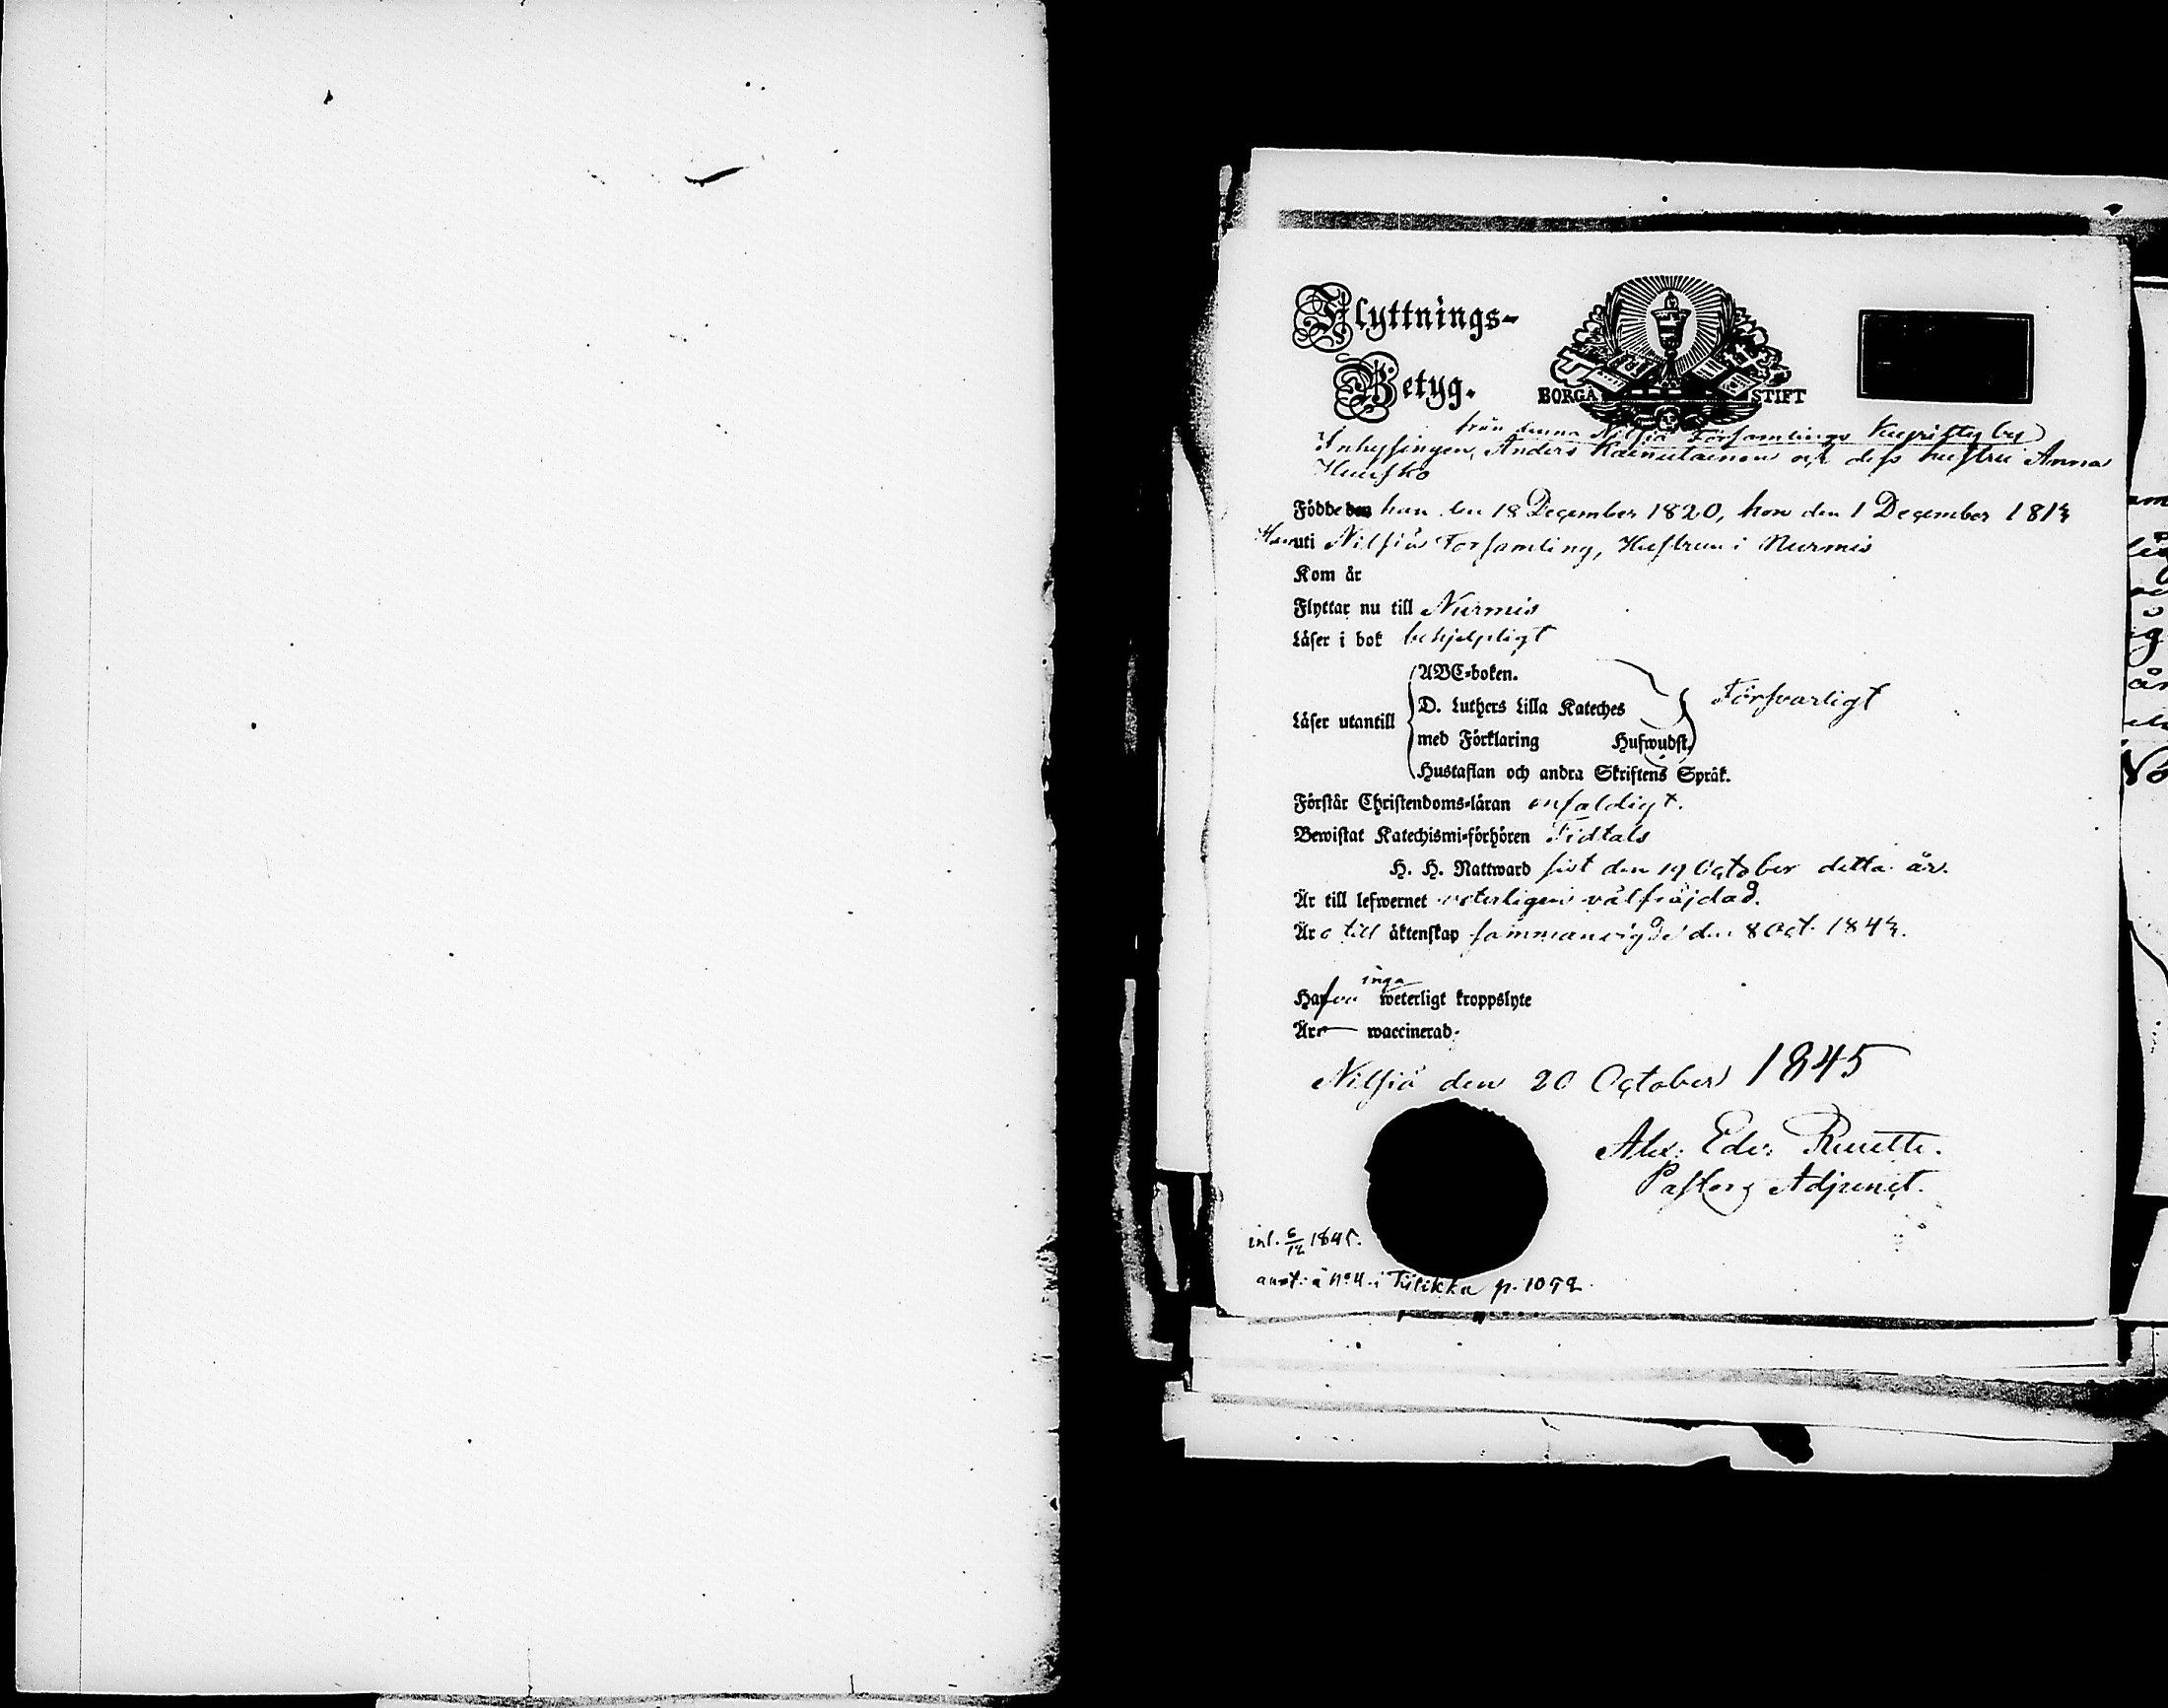 Flyttnings-
Betyg.
BORGÅ STIFT
från denna Nilsiä Församlings by
Inhysingen, Anders Kainulainen och dess hustru Anna
Huusko
Födde den han den 18 December 1820, hon den 1 December 1813
Han uti Nilsiä Församling, Hustrun i Nurmis
Kom år
Flyttar nu till Nurmis
Läser i bok behjelpligt
Läser utantill
ABC-boken.
D. Luthers Lilla Kateches
med Förklaring Hufwudst.
Hustaflan och andra Skriftens Språk.
Försvarligt
Förstår Christendoms-läran enfaldigt.
Bewistat Katechismi-förhören Tidtals
H. H. Nattward sist den 19 October detta år.
Är till lefwernet veterligen välfräjdad.
Äro till äktenskap sammanvigde den 8 Oct. 1843.
Hafva inga weterligt kroppslyte
Äro waccinerad.
Nilsiä den 20 October 1845
Alex. Edv.
Pastors Adjunct.
inl. 6/12 1845.
ant. å No 4 i Tiilikka p. 1092